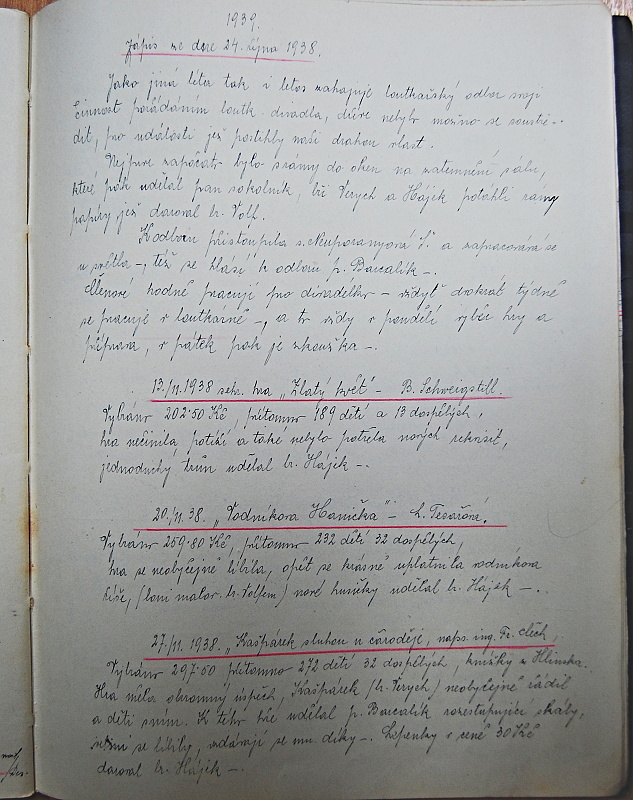 1939.
Zápis ze dne 24. října 1938.
Jako jiná léta tak i letos zahajuje loutkařský odbor svoji
činnost pořádáním loutk. divadla, dříve nebylo možno se soustře-
dit, pro události jež postihly naši drahou vlast.
Nejprve započato bylo s rámy do oken na zatemnění sálu,
které pak udělal pan sokolník, bří Verych a Hájek potáhli rámy
papíry jež daroval br. Volf.
K odboru přistoupila s. Š. a zapracovává se
u světla –, též se hlásí k odboru p. Barcalík –.
Členové hodně pracují pro divadélko – vždyť dvakrát týdně
se pracuje v loutkárně –, a to vždy v pondělí výběr hry a
příprava, v pátek pak je zkouška –.
13./11. 1938 sehr. hra „Zlatý květ" – B. Schweigstill.
Vybráno 202·50 Kč, přítomno 189 dětí a 13 dospělých,
hra nečinila potíží a také nebylo potřeba nových rekvisit,
jednoduchý trůn udělal br. Hájek –.
20./11. 38. „Vodníkova Hanička" – L. Tesařová.
Vybráno 259·80 Kč, přítomno 232 dětí 32 dospělých,
hra se neobyčejně líbila, opět se krásně uplatnila vodníkova
říše, (loni malov. br. Volfem) nové husičky udělal br. Hájek –.
27./11. 1938. „Kašpárek sluhou u čaroděje, naps. ing. Fr. Čech,
Vybráno 297·50 přítomno 272 dětí 32 dospělých, knížky z Hlinska.
Hra měla ohromný úspěch, Kašpárek (br. Verych) neobyčejně řádil
a děti s ním. K této hře udělal p. Barcalík rozestupující skály,
se líbily, vzdávají se mu díky –. Lepenky v ceně 30 Kč
daroval br. Hájek –.